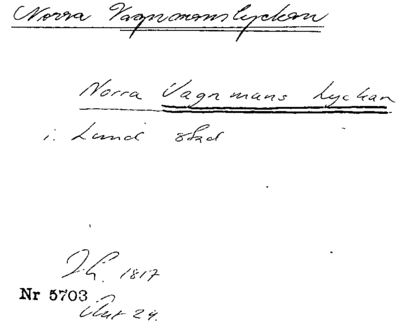 Norra Vagnmanslyckan
Norra Vagnmans Lyckan
i. Lund stad
J.L. 1817
Nr 5703
Akt 24.